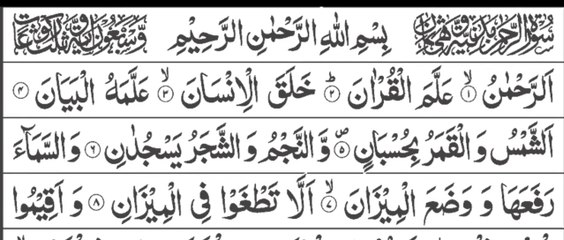 بِسْمِ اللهِ الرَّحْمٰنِ الرَّحِيْمِ
اَلرَّحْمٰنُ ۙ﴿۱﴾ عَلَّمَ الْقُرْاٰنَ ؕ﴿۲﴾ خَلَقَ الْاِنْسَانَ ۙ﴿۳﴾ عَلَّمَهُ الْبَيَانَ ﴿۴﴾
اَلشَّمْسُ وَ الْقَمَرُ بِحُسْبَانٍ ۪﴿۵﴾ وَّ النَّجْمُ وَ الشَّجَرُ يَسْجُدٰنِ ﴿۶﴾ وَ السَّمَآءَ
رَفَعَهَا وَ وَضَعَ الْمِيْزَانَ ۙ﴿۷﴾ اَلَّا تَطْغَوْا فِي الْمِيْزَانِ ﴿۸﴾ وَ اَقِيْمُوا